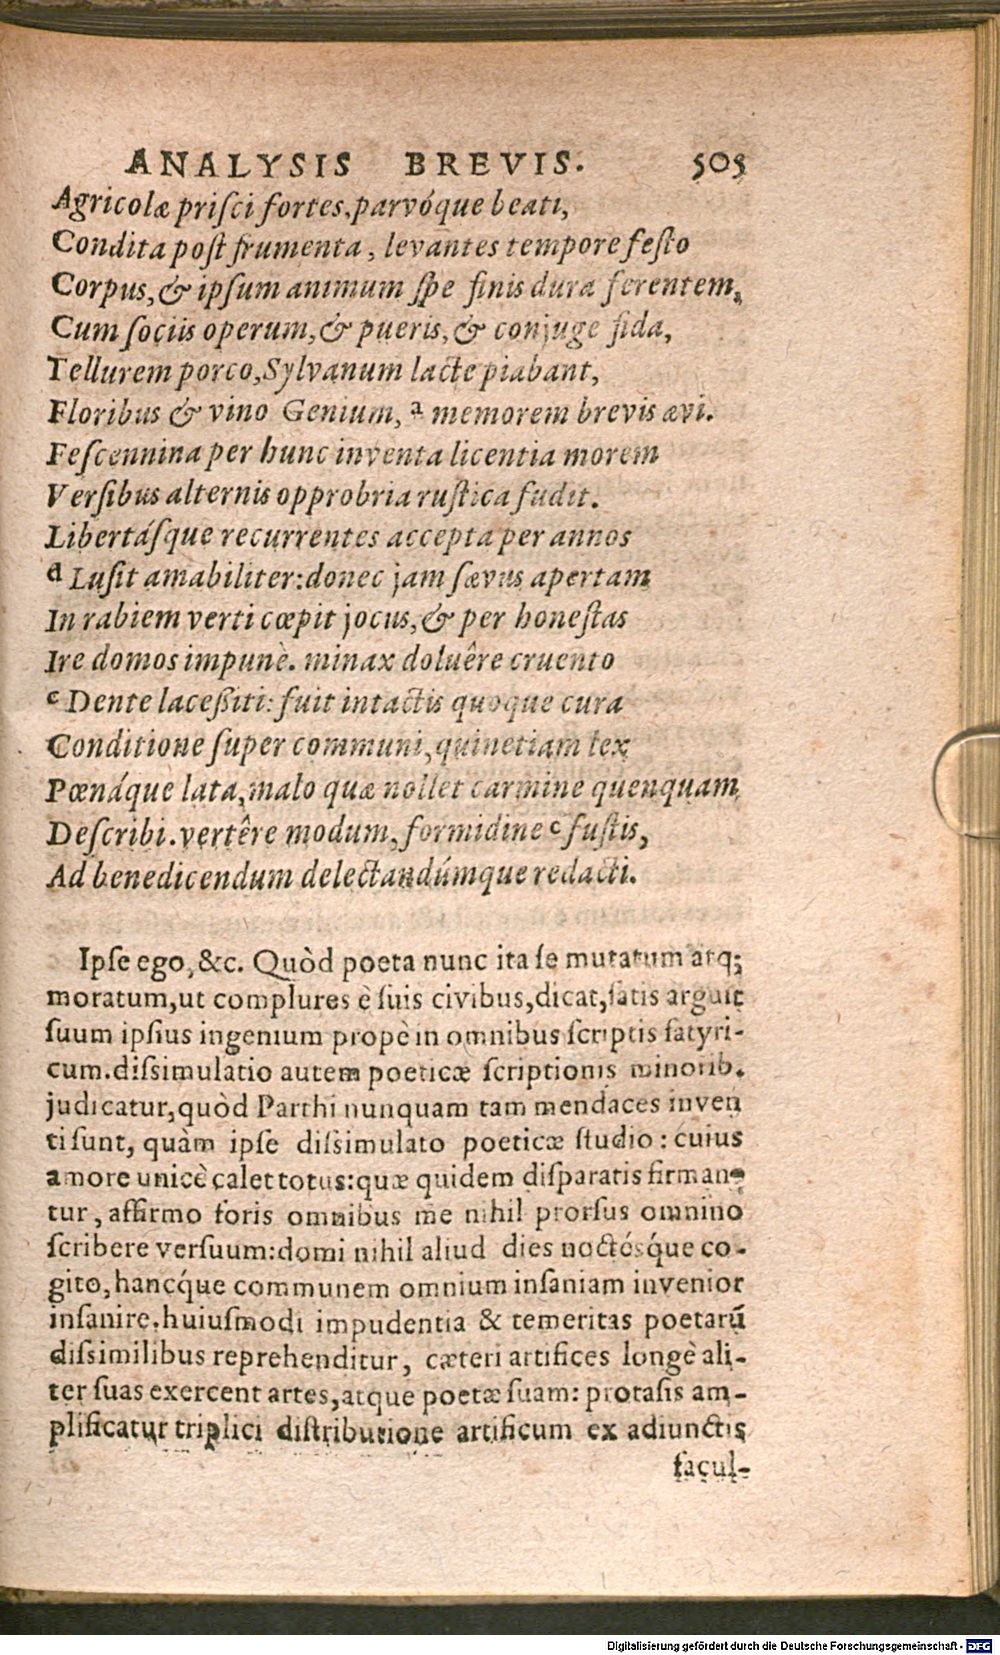 ANALYSIS BREVIS. 505
Agricolæ priſci fortes, parvóque beati,
Condita poſt frumenta, levantes tempore feſto
Corpus, & ipſum animum ſpe finis dura ferentem,
Cum ſociis operum, & pueris, & conjuge fida,
Tellurem porco, Sylvanum lacte piabant,
Floribus & vino Genium, ª memorem brevis ævi.
Feſcennina per hunc inventa licentia morem
Verſibus alternis opprobria ruſtica fudit.
Libertáſque recurrentes accepta per annos
d Luſit amabiliter: donec jam ſævus apertam
In rabiem verti cœpit jocus, & per honeſtas
Ire domos impunè. minax doluêre cruento
c Dente laceßiti: fuit intactis quoque cura
Conditione ſuper communi, quinetiam lex
Pœnáque lata, malo quæ nollet carmine quenquam
Deſcribi. vertêre modum, formidine c fuſtis,
Ad benedicendum delectandúmque redacti.
Ipſe ego, &c. Quòd poeta nunc ita ſe mutatum atq;
moratum, ut complures è ſuis civibus, dicat, ſatis arguit
ſuum ipſius ingenium propè in omnibus ſcriptis ſatyri-
cum. diſsimulatio autem poeticæ ſcriptionis minorib.
judicatur, quòd Parthi nunquam tam mendaces inven
ti ſunt, quàm ipſe diſsimulato poeticæ ſtudio: cuius
amore unicè calet totus: quæ quidem diſparatis firman-
tur, affirmo foris omnibus me nihil prorſus omnino
ſcribere verſuum: domi nihil aliud dies noctéſq́ue co-
gito, hancq́ue communem omnium inſaniam invenior
inſanire. huiuſmodi impudentia & temeritas poetarū
diſsimilibus reprehenditur, cæteri artifices longè ali-
ter ſuas exercent artes, atque poetæ ſuam: protaſis am-
plificatur triplici diſtributione artificum ex adiunctis
facul-
Digitalisierung gefördert durch die Deutsche Forschungsgemeinschaft - DFG